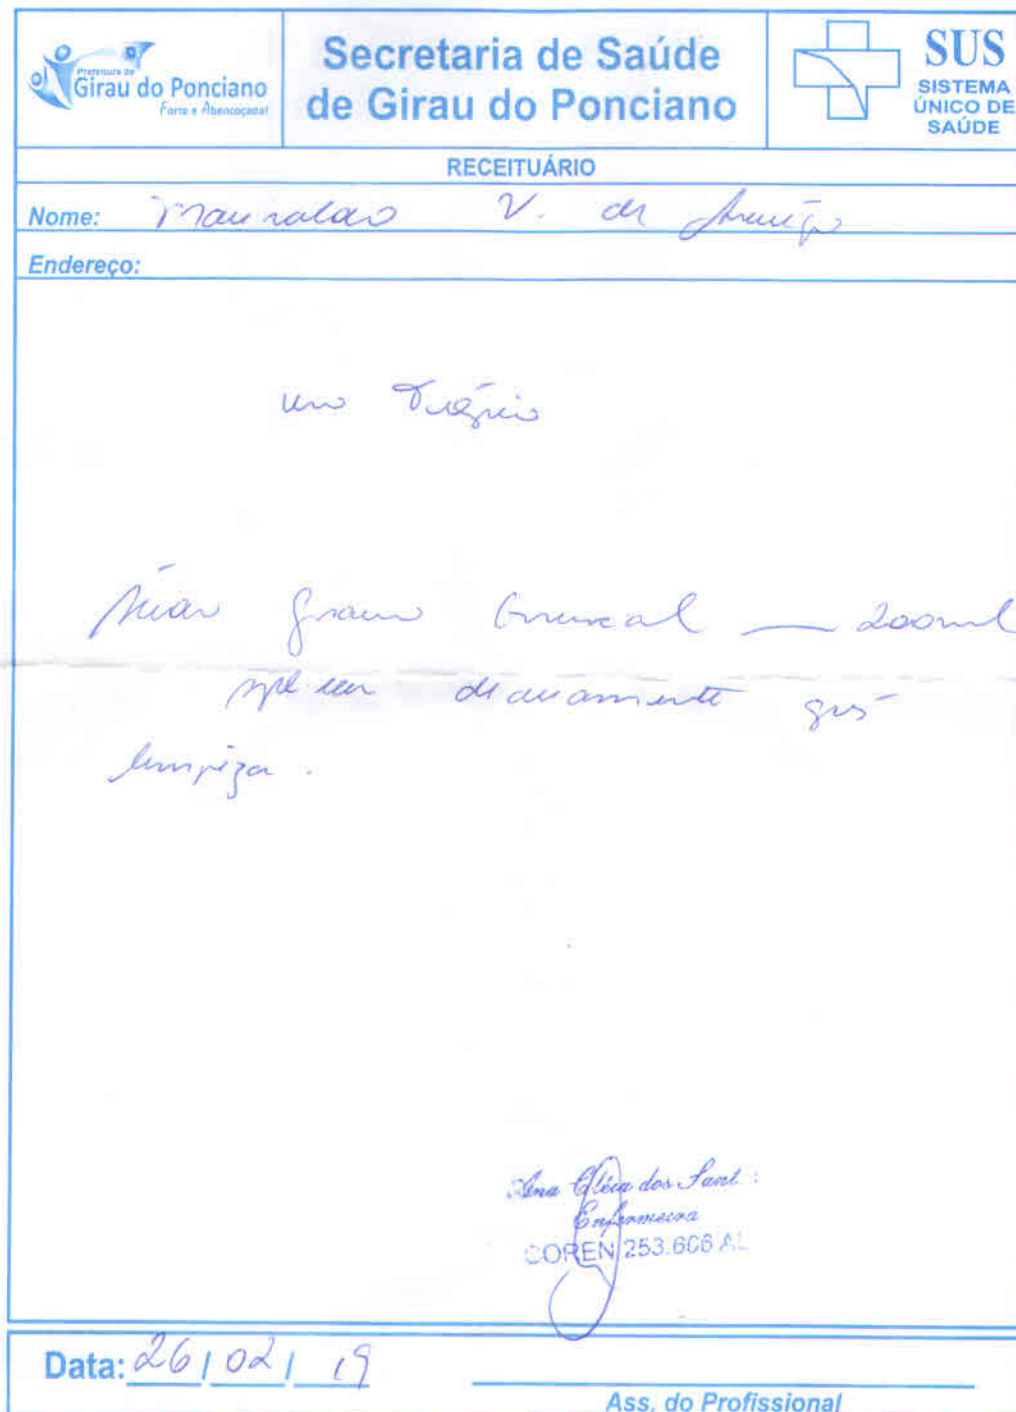 Prefeitura de
Girau do Ponciano
Forte e Abençoada!
Secretaria de Saúde
de Girau do Ponciano
SUS
SISTEMA
ÚNICO DE
SAÚDE
RECEITUÁRIO
Nome: V. de Araújo
Endereço:
uso
girassol — 200ml
aplicar diariamente após
limpeza.
Ana Cléia dos Sant
Enfermeira
COREN 253.606 AL
Data: 26 / 02 / 19
Ass. do Profissional